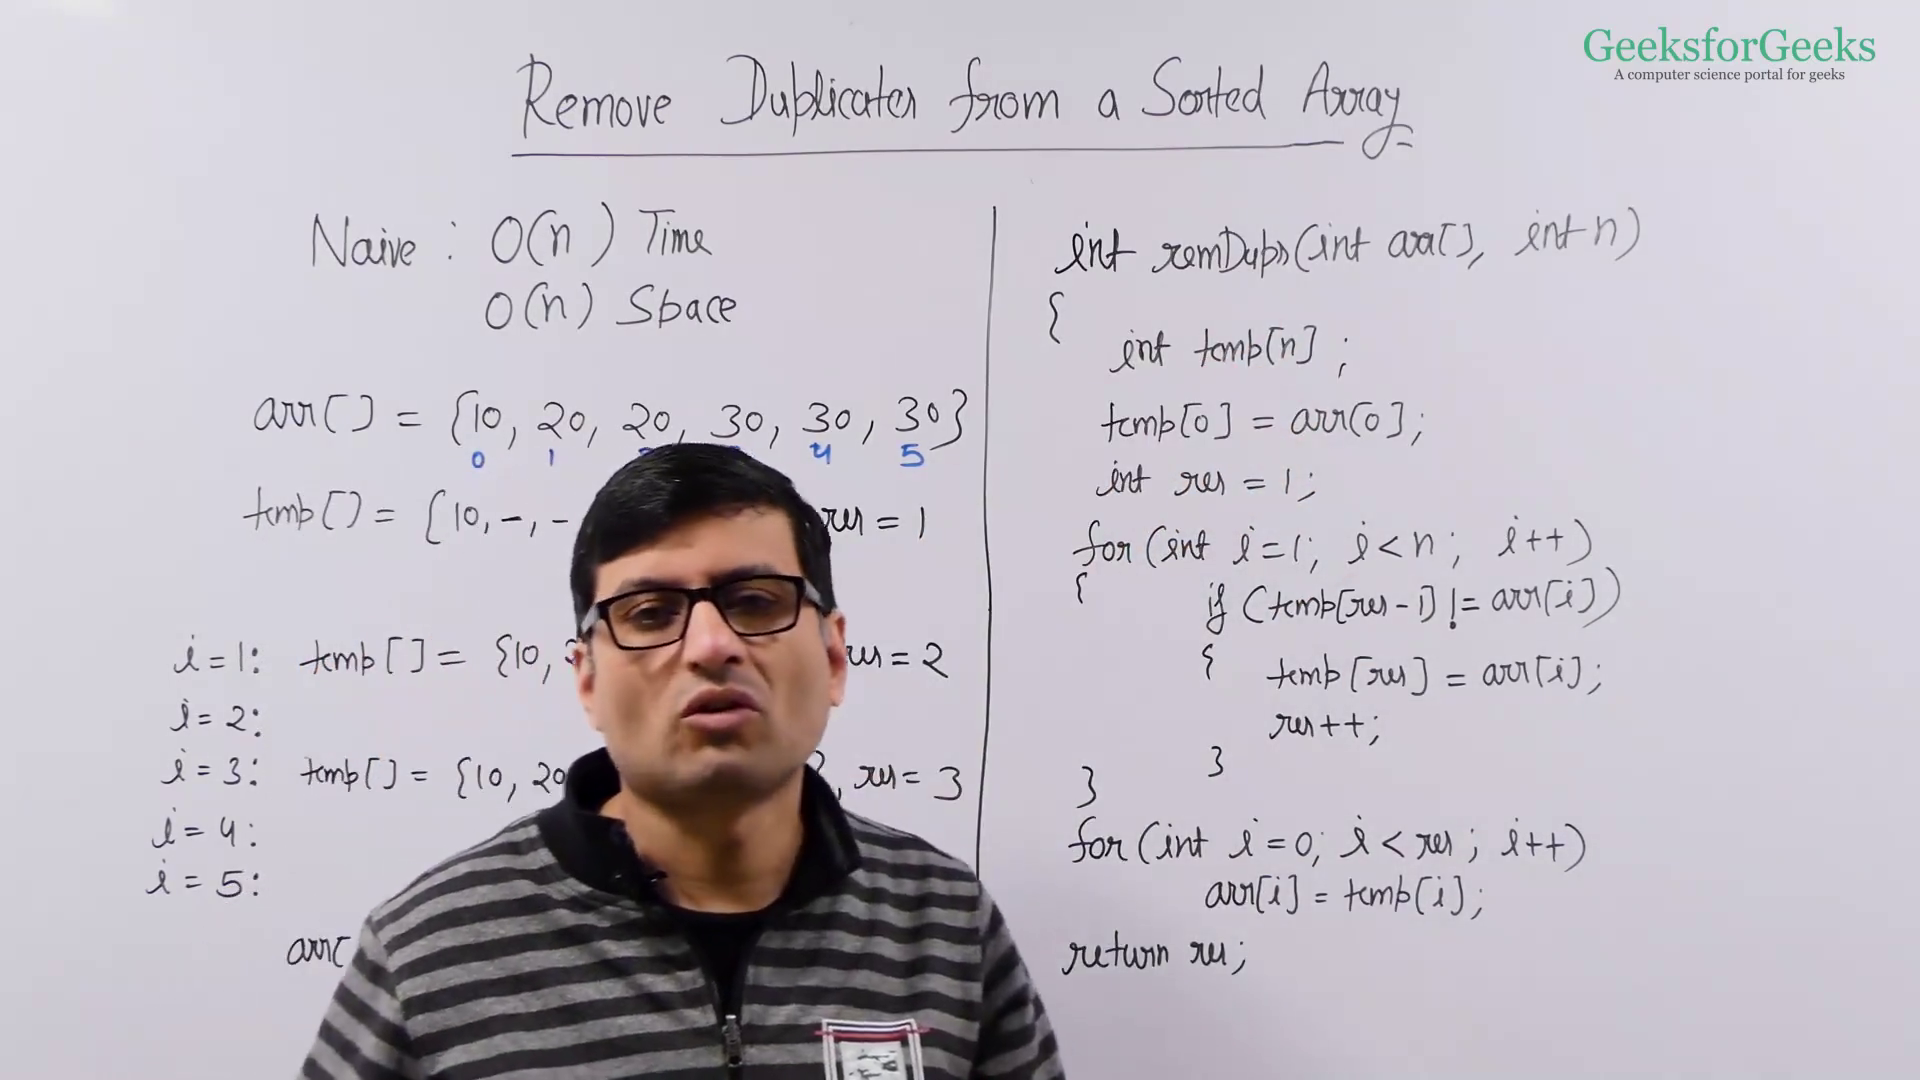 GeeksforGeeks
A computer science portal for geeks
Remove Duplicates from a Sorted Array
Naive : O(n) Time
O(n) Space
arr[] = {10, 20, 20, 30, 30, 30}
0 1 4 5
temp[] = {10, -, - res = 1
i = 1: temp[] = {10, res = 2
i = 2:
i = 3: temp[] = {10, 20 }, res = 3
i = 4:
i = 5:
arr[
int remDups(int arr[], int n)
{
int temp[n];
temp[0] = arr[0];
int res = 1;
for (int i=1; i<n; i++)
{ if (temp[res-1] != arr[i])
{ temp[res] = arr[i];
res++;
}
}
for (int i=0; i<res; i++)
arr[i] = temp[i];
return res;